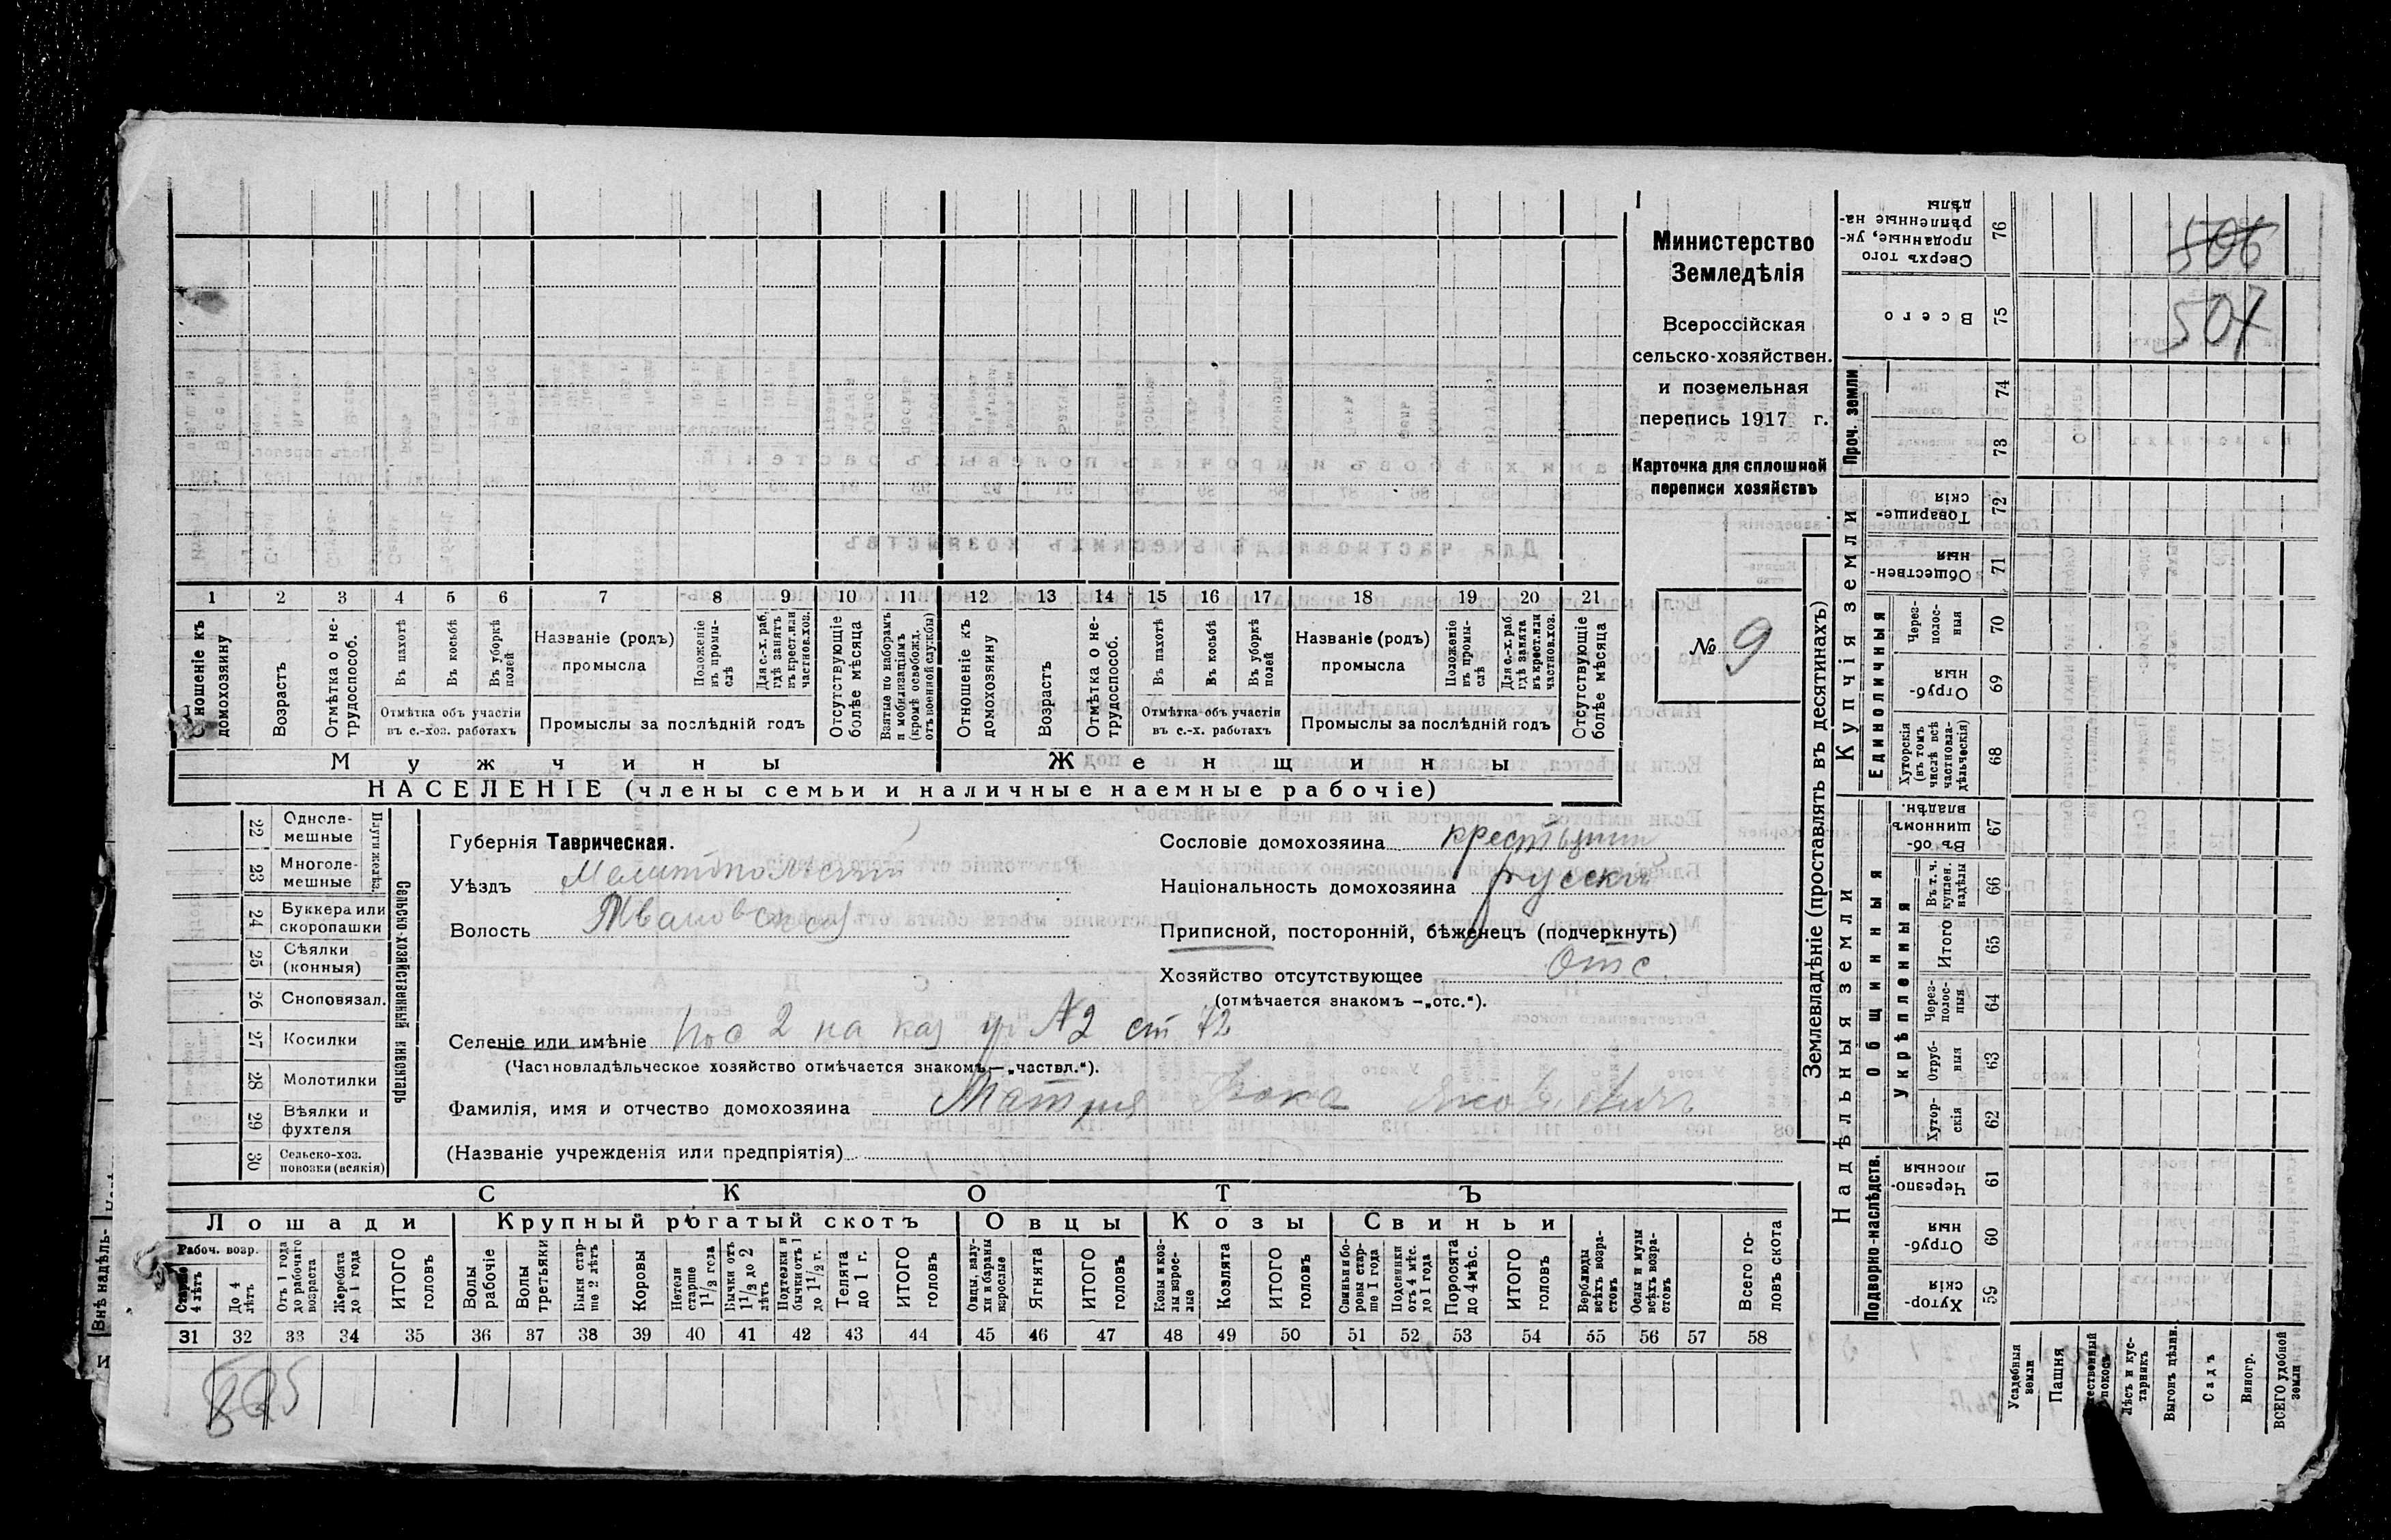 Министерство
Земледѣлія
Всероссійская
сельско-хозяйствен.
и поземельная
перепись 1917 г.
Карточка для сплошной
переписи хозяйствъ
№ 9
1 2 3 4 5 6 7 8 9 10 11 12 13 14 15 16 17 18 19 20 21
Отношеніе къ домохозяину
Возрастъ
Отмѣтка о нетрудоспособ.
Въ пахотѣ
Въ косьбѣ
Въ уборкѣ полей
Отмѣтка объ участіи въ с.-хоз. работахъ
Названіе (родъ) промысла
Положеніе въ промыслѣ
Для с.-х. раб. гдѣ занятъ въ крест. или частнов. хоз.
Промыслы за послѣдній годъ
Отсутствующіе болѣе мѣсяца
Взятые по наборамъ и мобилизаціямъ (кромѣ освобожд. отъ военной службы)
Отношеніе къ домохозяину
Возрастъ
Отмѣтка о нетрудоспособ.
Въ пахотѣ
Въ косьбѣ
Въ уборкѣ полей
Отмѣтка объ участіи въ с.-х. работахъ
Названіе (родъ) промысла
Положеніе въ промыслѣ
Для с.-х. раб. гдѣ занята въ крест. или частнов. хоз.
Промыслы за послѣдній годъ
Отсутствующіе болѣе мѣсяца
Мужчины
Женщины
НАСЕЛЕНІЕ (члены семьи и наличные наемные рабочіе)
22 Одноле-мешные
23 Многоле-мешные
Плуги желѣз.
24 Буккера или скоропашки
25 Сѣялки (конныя)
26 Сноповязал.
27 Косилки
28 Молотилки
29 Вѣялки и фухтеля
30 Сельско-хоз. повозки (всякія)
Сельско-хозяйственный инвентарь
Губернія Таврическая.
Уѣздъ Мелитопольскій
Волость Ивановская
Сословіе домохозяина крестьянин
Національность домохозяина русскій
Приписной, посторонній, бѣженецъ (подчеркнуть)
Хозяйство отсутствующее Отс.
(отмѣчается знакомъ —„отс.“).
Селеніе или имѣніе пос 2 на каз уч №2 ст 72
(Частновладѣльческое хозяйство отмѣчается знакомъ—„частвл.“).
Фамилія, имя и отчество домохозяина Яковлевичъ
(Названіе учрежденія или предпріятія)
СКОТЪ
Лошади
Крупный рогатый скотъ
Овцы
Козы
Свиньи
Рабоч. возр.
Старше 4 лѣтъ
До 4 лѣтъ
Отъ 1 года до рабочаго возраста
Жеребята до 1 года
ИТОГО головъ
Волы рабочіе
Волы третьяки
Быки старше 2 лѣтъ
Коровы
Нетели старше 1½ года
Бычки отъ 1½ до 2 лѣтъ
Подтелки и бычки отъ 1 до 1½ г.
Телята до 1 г.
ИТОГО головъ
Овцы, валухи и бараны взрослые
Ягнята
ИТОГО головъ
Козы и козлы взрослые
Козлята
ИТОГО головъ
Свиньи и боровы старше 1 года
Подсвинки отъ 4 мѣс. до 1 года
Поросята до 4 мѣс.
ИТОГО головъ
Верблюды всѣхъ возрастовъ
Ослы и мулы всѣхъ возрастовъ
Всего головъ скота
31 32 33 34 35 36 37 38 39 40 41 42 43 44 45 46 47 48 49 50 51 52 53 54 55 56 57 58
Землевладѣніе (проставлять въ десятинахъ)
Надѣльныя земли
Купчія земли
Проч. земли
Подворно-наслѣдств.
Общинныя
Укрѣпленныя
Единоличныя
76 Сверхъ того проданные, укрѣпленные надѣлы
75 Всего
74
73
72 Товарищескія
71 Общественныя
70 Черезполосныя
69 Отрубныя
68 Хуторскія (въ томъ числѣ всѣ частновладѣльческія)
67 Въ общинномъ владѣн.
66 Въ т. ч. куплен. надѣлы
65 Итого
64 Черезполосныя
63 Отрубныя
62 Хуторскія
61 Черезполосныя
60 Отрубныя
59 Хуторскія
Усадебныя земли
Пашня
покосъ
Лѣсъ и кустарникъ
Выгонъ цѣлин.
Садъ
Виногр.
ВСЕГО удобной земли
506
507
Внѣ надѣль-
И